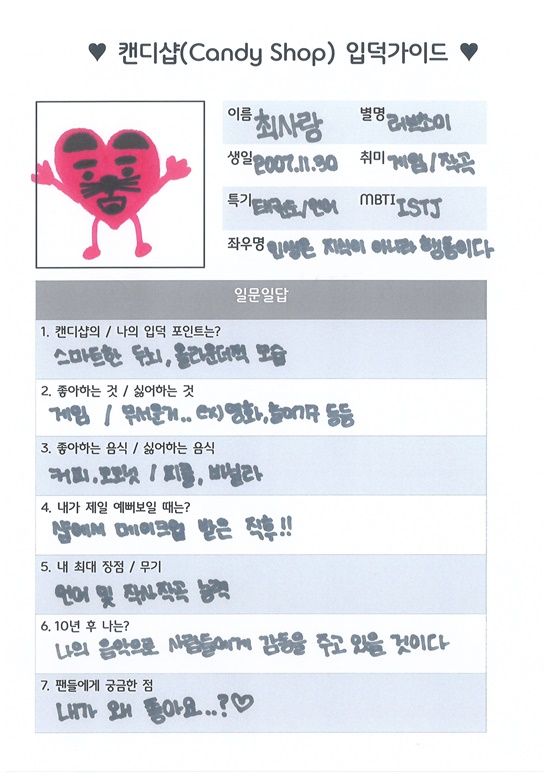 ♥ 캔디샵(Candy Shop) 입덕가이드 ♥
이름 최사랑 별명 러브소미
생일 2007.11.30 취미 게임/작곡
특기 태권도/언어 MBTI ISTJ
좌우명 인생은 지식이 아니라 행동이다
일문일답
1. 캔디샵의 / 나의 입덕 포인트는?
스마트한 두뇌, 올라운더쩍 모습
2. 좋아하는 것 / 싫어하는 것
게임 / 무서운거.. ex)영화,놀이기구 등등
3. 좋아하는 음식 / 싫어하는 음식
커피, / 피클, 바닐라
4. 내가 제일 예뻐보일 때는?
샵에서 메이크업 받은 직후!!
5. 내 최대 장점 / 무기
언어 및 작사작곡 능력
6. 10년 후 나는?
나의 음악으로 사람들에게 감동을 주고 있을 것이다
7. 팬들에게 궁금한 점
내가 왜 좋아요...?♡